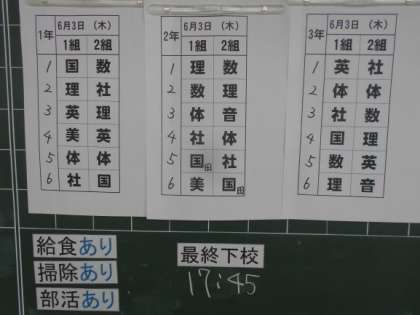 1年
6月3日 (木)
1組 2組
1 国 数
2 理 社
3 英 理
4 美 英
5 体 体
6 社 国
2年
6月3日 (木)
1組 2組
1 理 数
2 数 理
3 体 音
4 社 体
5 国 社
6 美 国
3年
6月3日 (木)
1組 2組
1 英 社
2 体 体
3 社 数
4 国 理
5 数 英
6 理 音
給食あり
掃除あり
部活あり
最終下校
17:45